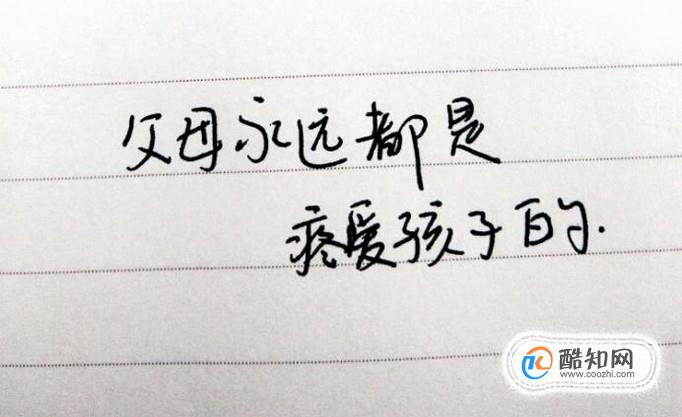 父母永远都是
疼爱孩子的.
酷知网
www.coozhi.com